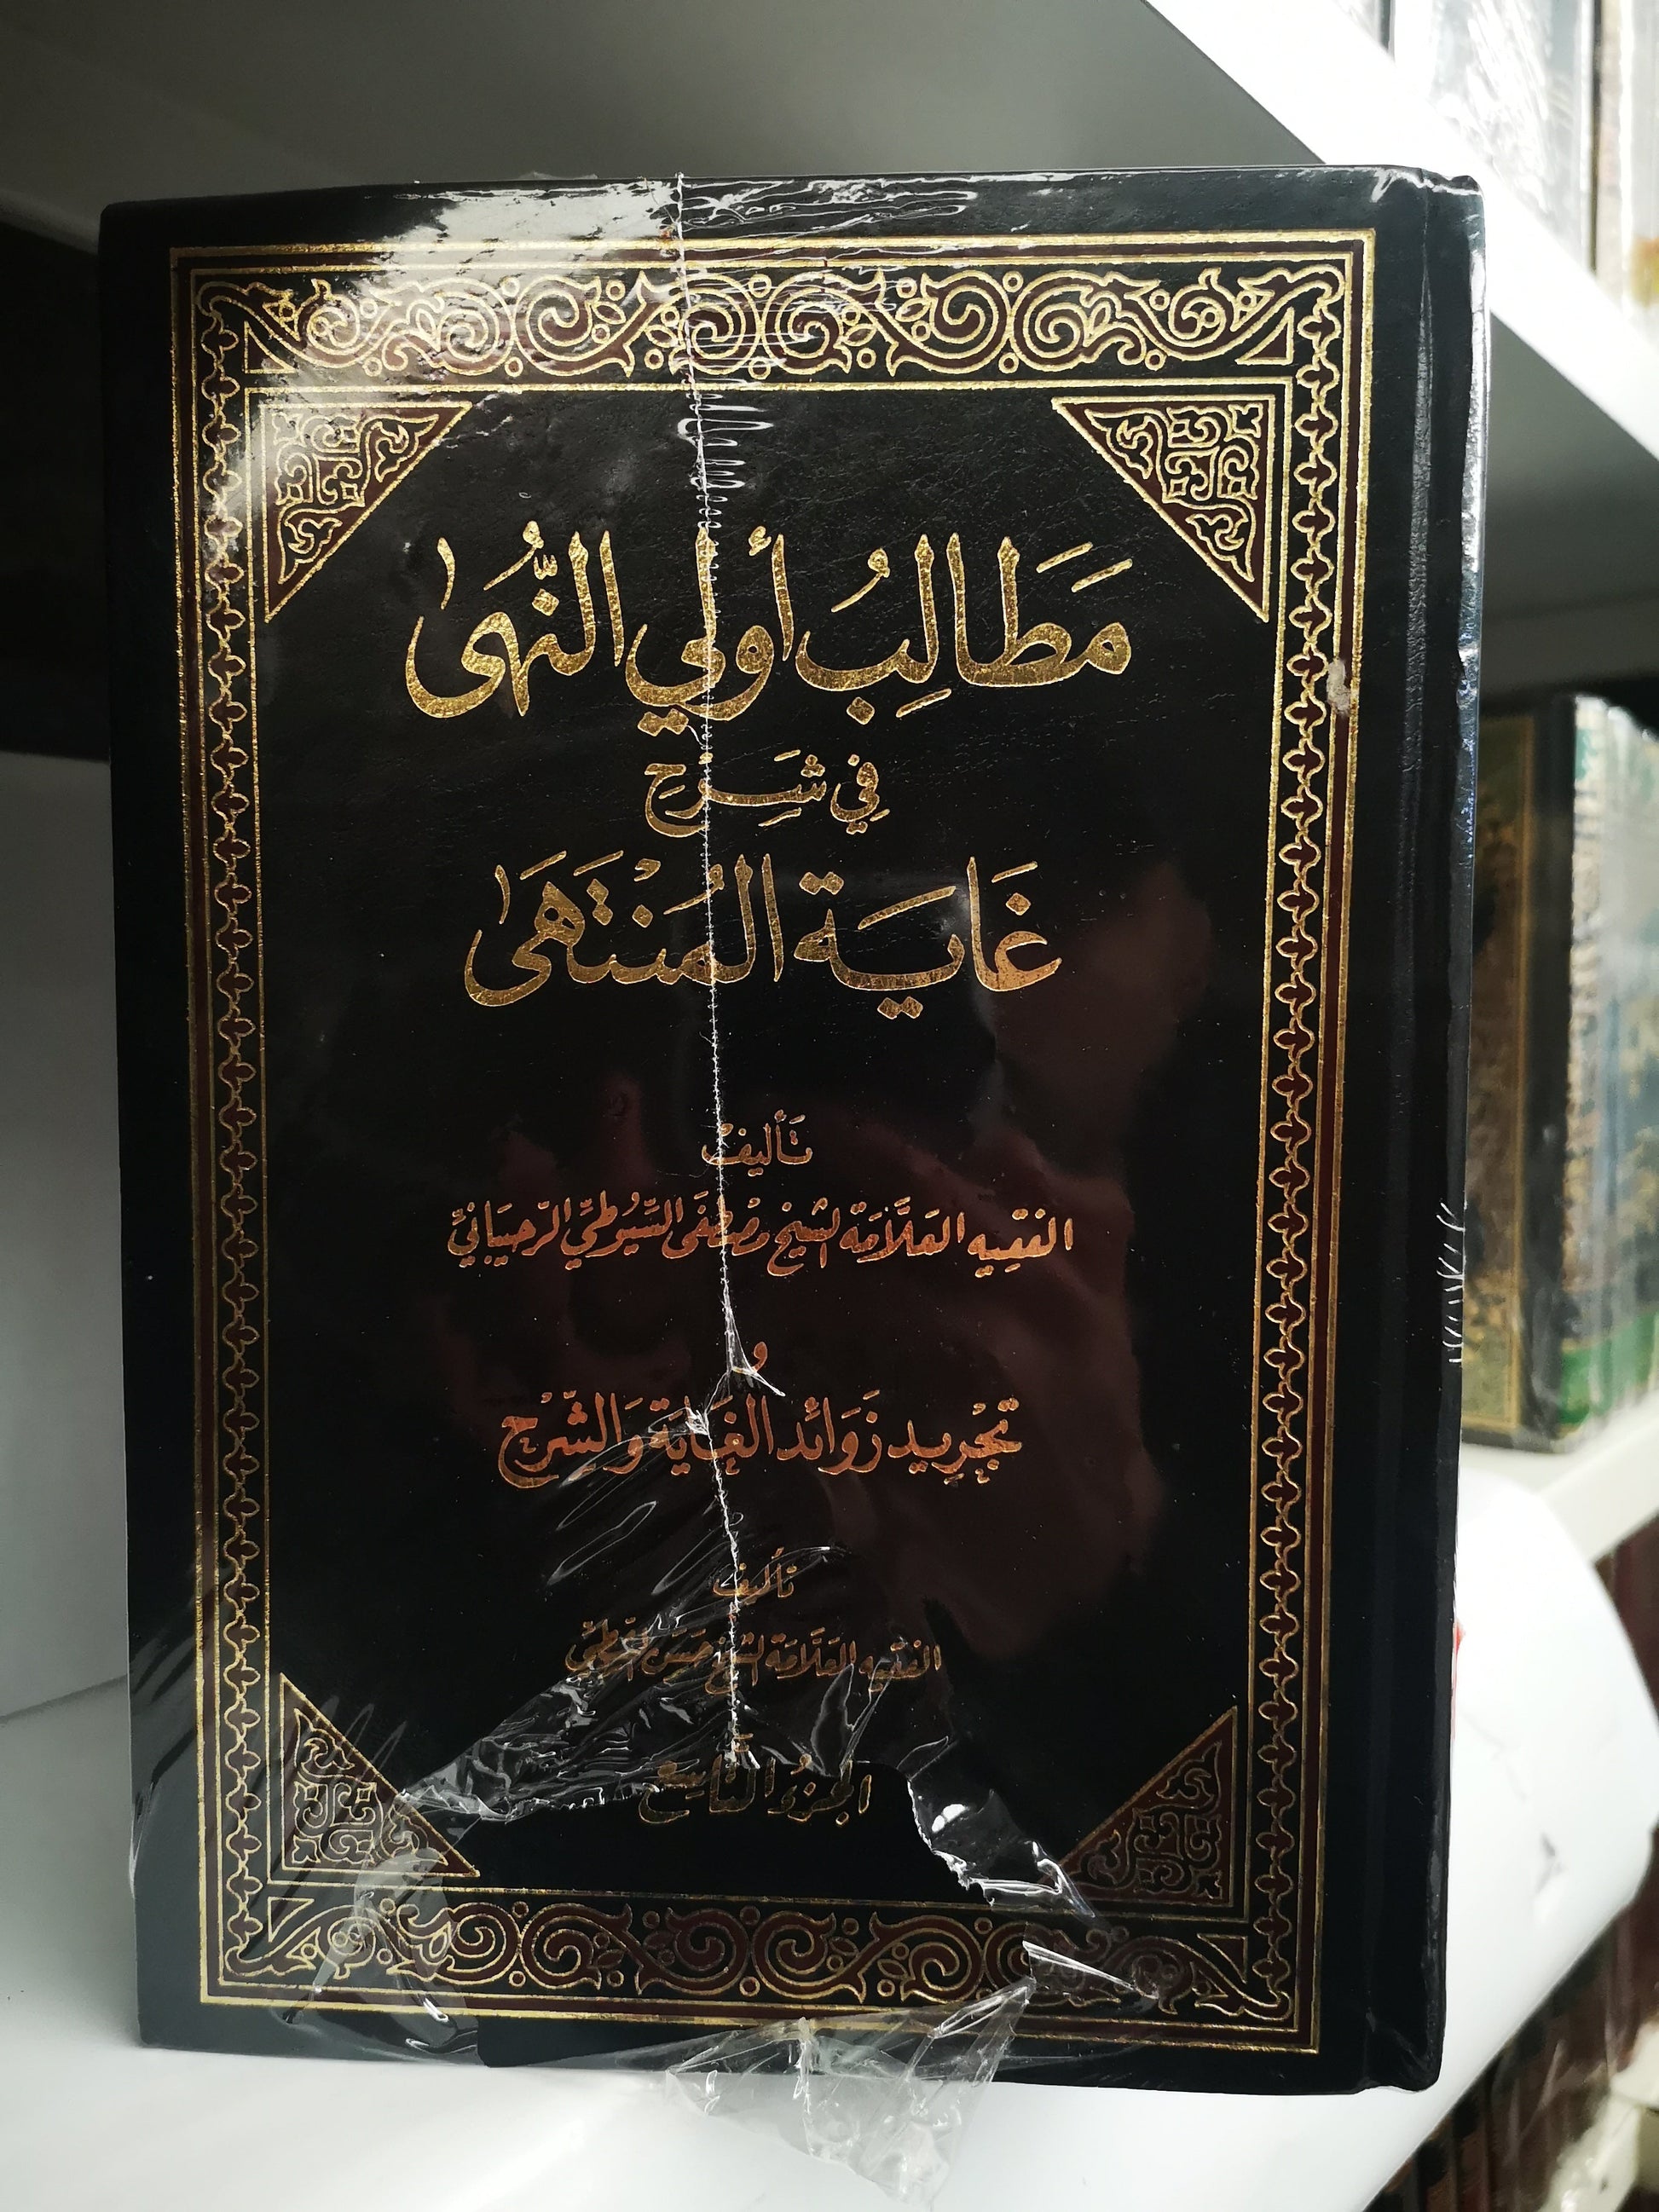 مَطَالِبُ أولِي النُّهَى
فِي شَرْحِ
غَايَةِ المُنْتَهَى
تَأليفُ
الفقِيهِ العَلَّامَة الشيخ مصْطفَى السُّيوطيِّ الرّحيبَانيِّ
و
تجْرِيد زَوَائد الغَايَة وَالشّرْح
تأليف
الفقيه العَلَّامَة الشيخ حسَن الشطي
الجزءُ التَّاسِع